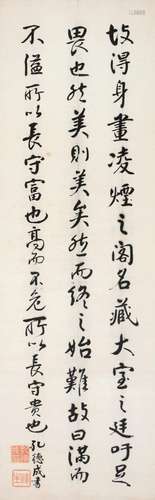 故得身畫凌煙之閣名藏大室之廷吁足
畏也然美則美矣然而終之始難故曰滿而
不溢所以長守富也高而不危所以長守貴也 孔德成書